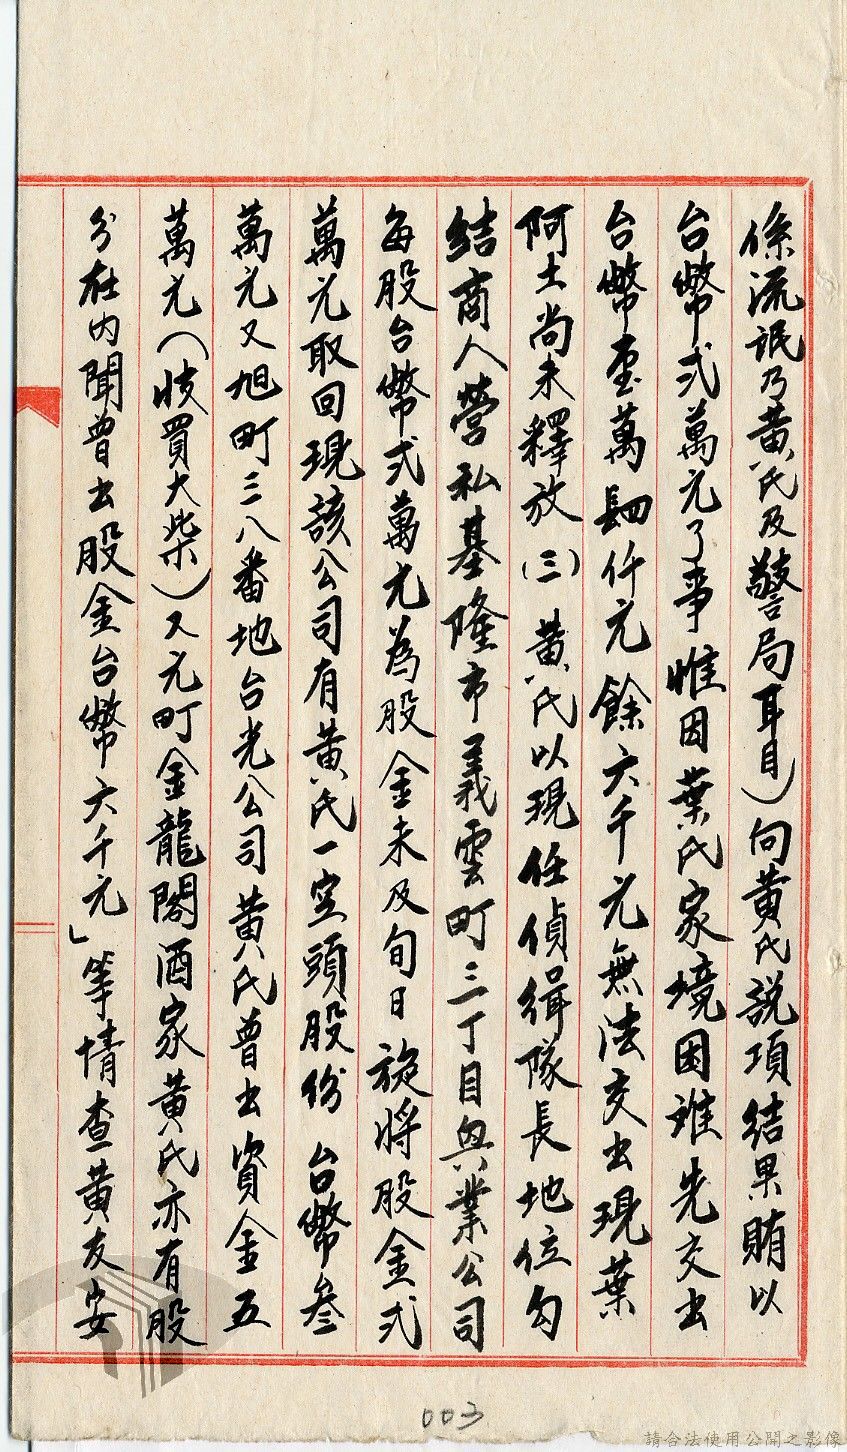 係流氓乃黃氏及警局耳目)向黃氏說項結果賄以
台幣弍萬元了事惟因葉氏家境困难先交出
台幣壹萬肆仟元餘六千元無法交出現葉
阿土尚未釋放(三)黃氏以現任偵緝隊長地位勾
結商人營私基隆市義雲町三丁目興業公司
每股台幣弍萬元為股金未及旬日旋將股金弍
萬元取回現該公司有黃氏一空頭股份台幣叁
萬元又旭町三八番地台光公司黃氏曾出資金五
萬元(收買大柴)又元町金龍閣酒家黃氏亦有股
分在內聞曾出股金台幣六千元」等情查黃友安
003
請合法使用公開之影像